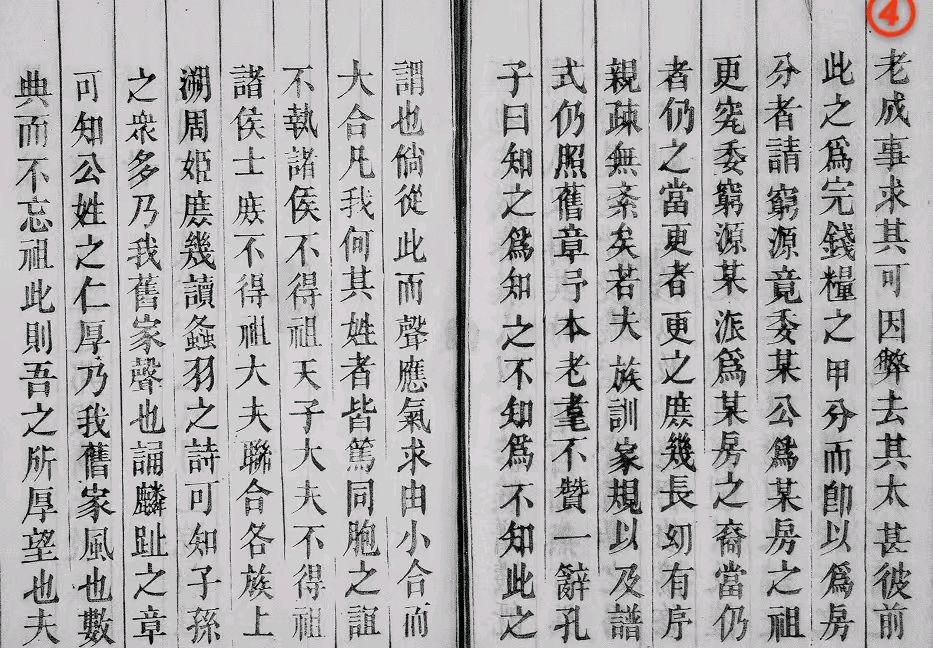 ④
老成事求其可因弊去其太甚彼前
此之爲完錢糧之甲分而卽以爲房
分者請窮源竟委某公爲某房之祖
更窕委窮源某派爲某房之裔當仍
者仍之當更者更之庶幾長幼有序
親疎無紊矣若夫族訓家規以及譜
式仍照舊章予本老耄不贊一辭孔
子曰知之爲知之不知爲不知此之
謂也倘從此而聲應氣求由小合而
大合凡我何其姓者皆篤同胞之誼
不執諸侯不得祖天子大夫不得祖
諸侯士庶不得祖大夫聯合各族上
溯周姬庶幾讀螽羽之詩可知子孫
之衆多乃我舊家聲也誦麟趾之章
可知公姓之仁厚乃我舊家風也數
典而不忘祖此則吾之所厚望也夫